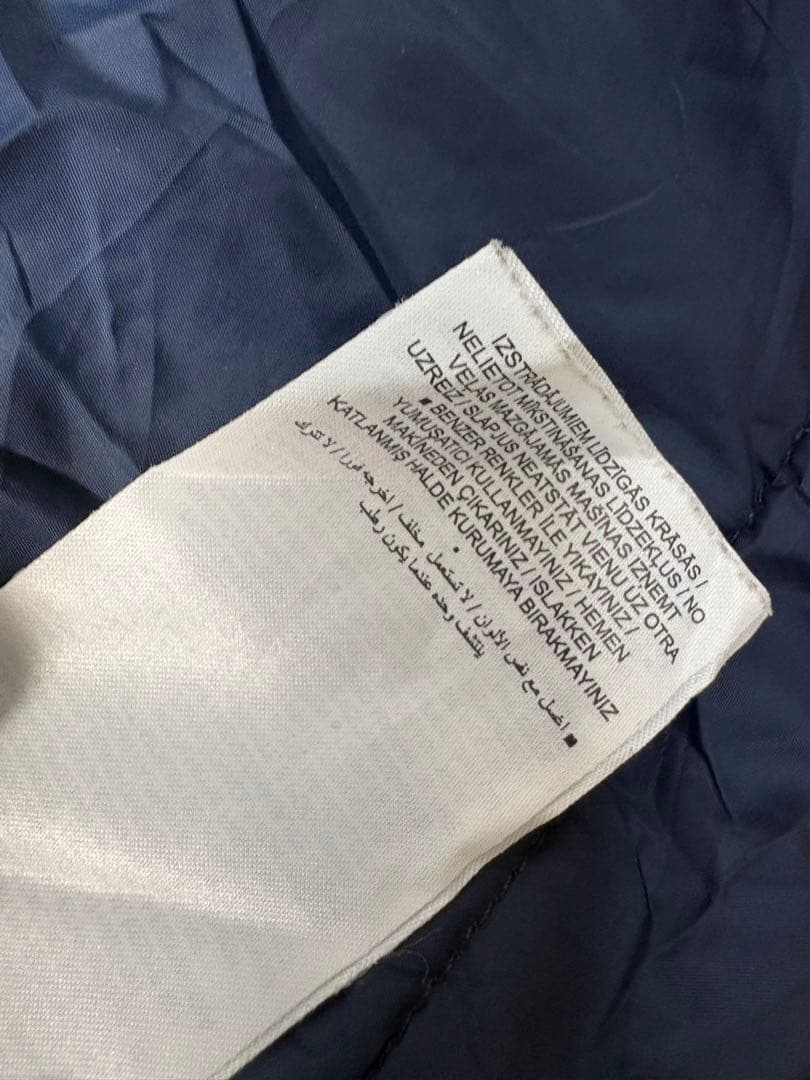 IZSTRĀDĀJUMIEM LĪDZĪGĀS KRĀSĀS /
NELIETOT MĪKSTINĀŠANAS LĪDZEKĻUS / NO
VEĻAS MAZGĀJAMĀS MAŠĪNAS IZŅEMT
UZREIZ / SLAPJUS NEATSTĀT VIENU UZ OTRA
■ BENZER RENKLER İLE YIKAYINIZ /
YUMUŞATICI KULLANMAYINIZ / HEMEN
MAKİNEDEN ÇIKARINIZ / ISLAKKEN
KATLANMIŞ HALDE KURUMAYA BIRAKMAYINIZ
■ اغسل مع نفس الألوان / لا تستعمل مخفف / اخرجه فورا / لا تترك
ينتقف وحده عندما يكون رطب